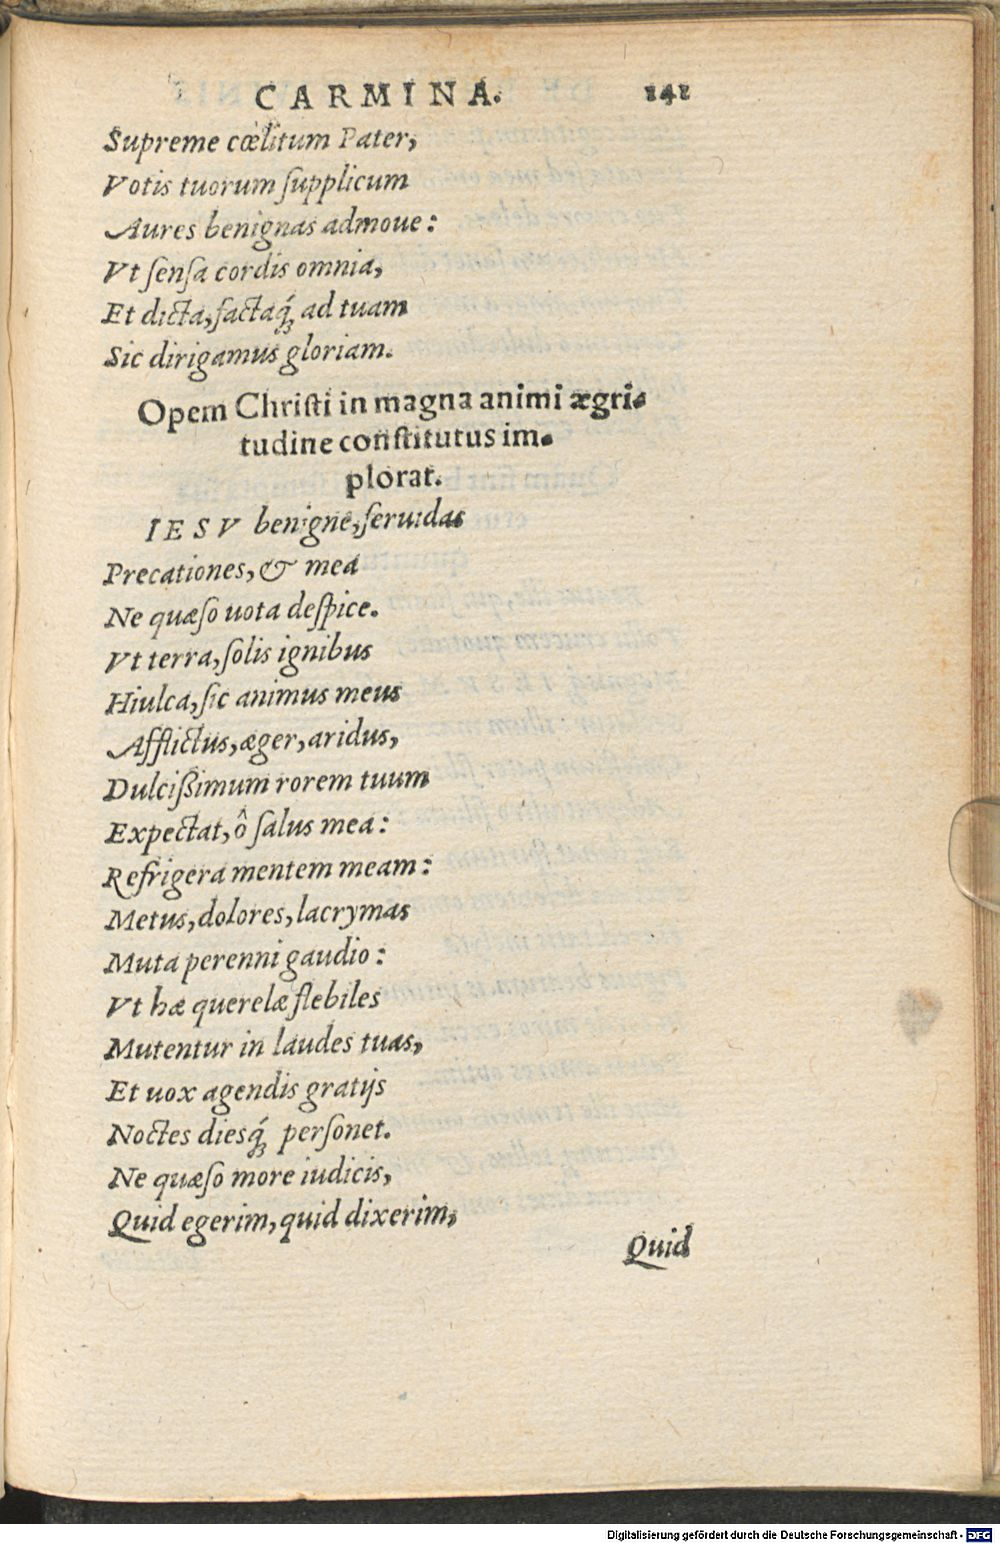 CARMINA. 141
Supreme cœlitum Pater,
Votis tuorum ſupplicum
Aures benignas admoue:
Vt ſenſa cordis omnia,
Et dicta, factaq́; ad tuam
Sic dirigamus gloriam.
Opem Chriſti in magna animi ægri-
tudine conſtitutus im-
plorat.
IESV benigne, feruidas
Precationes, & mea
Ne quæſo uota deſpice.
Vt terra, ſolis ignibus
Hiulca, ſic animus meus
Afflictus, æger, aridus,
Dulciſſimum rorem tuum
Expectat, ô ſalus mea:
Refrigera mentem meam:
Metus, dolores, lacrymas
Muta perenni gaudio:
Vt hæ querelæ flebiles
Mutentur in laudes tuas,
Et uox agendis gratijs
Noctes diesq́; perſonet.
Ne quæſo more iudicis,
Quid egerim, quid dixerim,
Quid
Digitalisierung gefördert durch die Deutsche Forschungsgemeinschaft - DFG